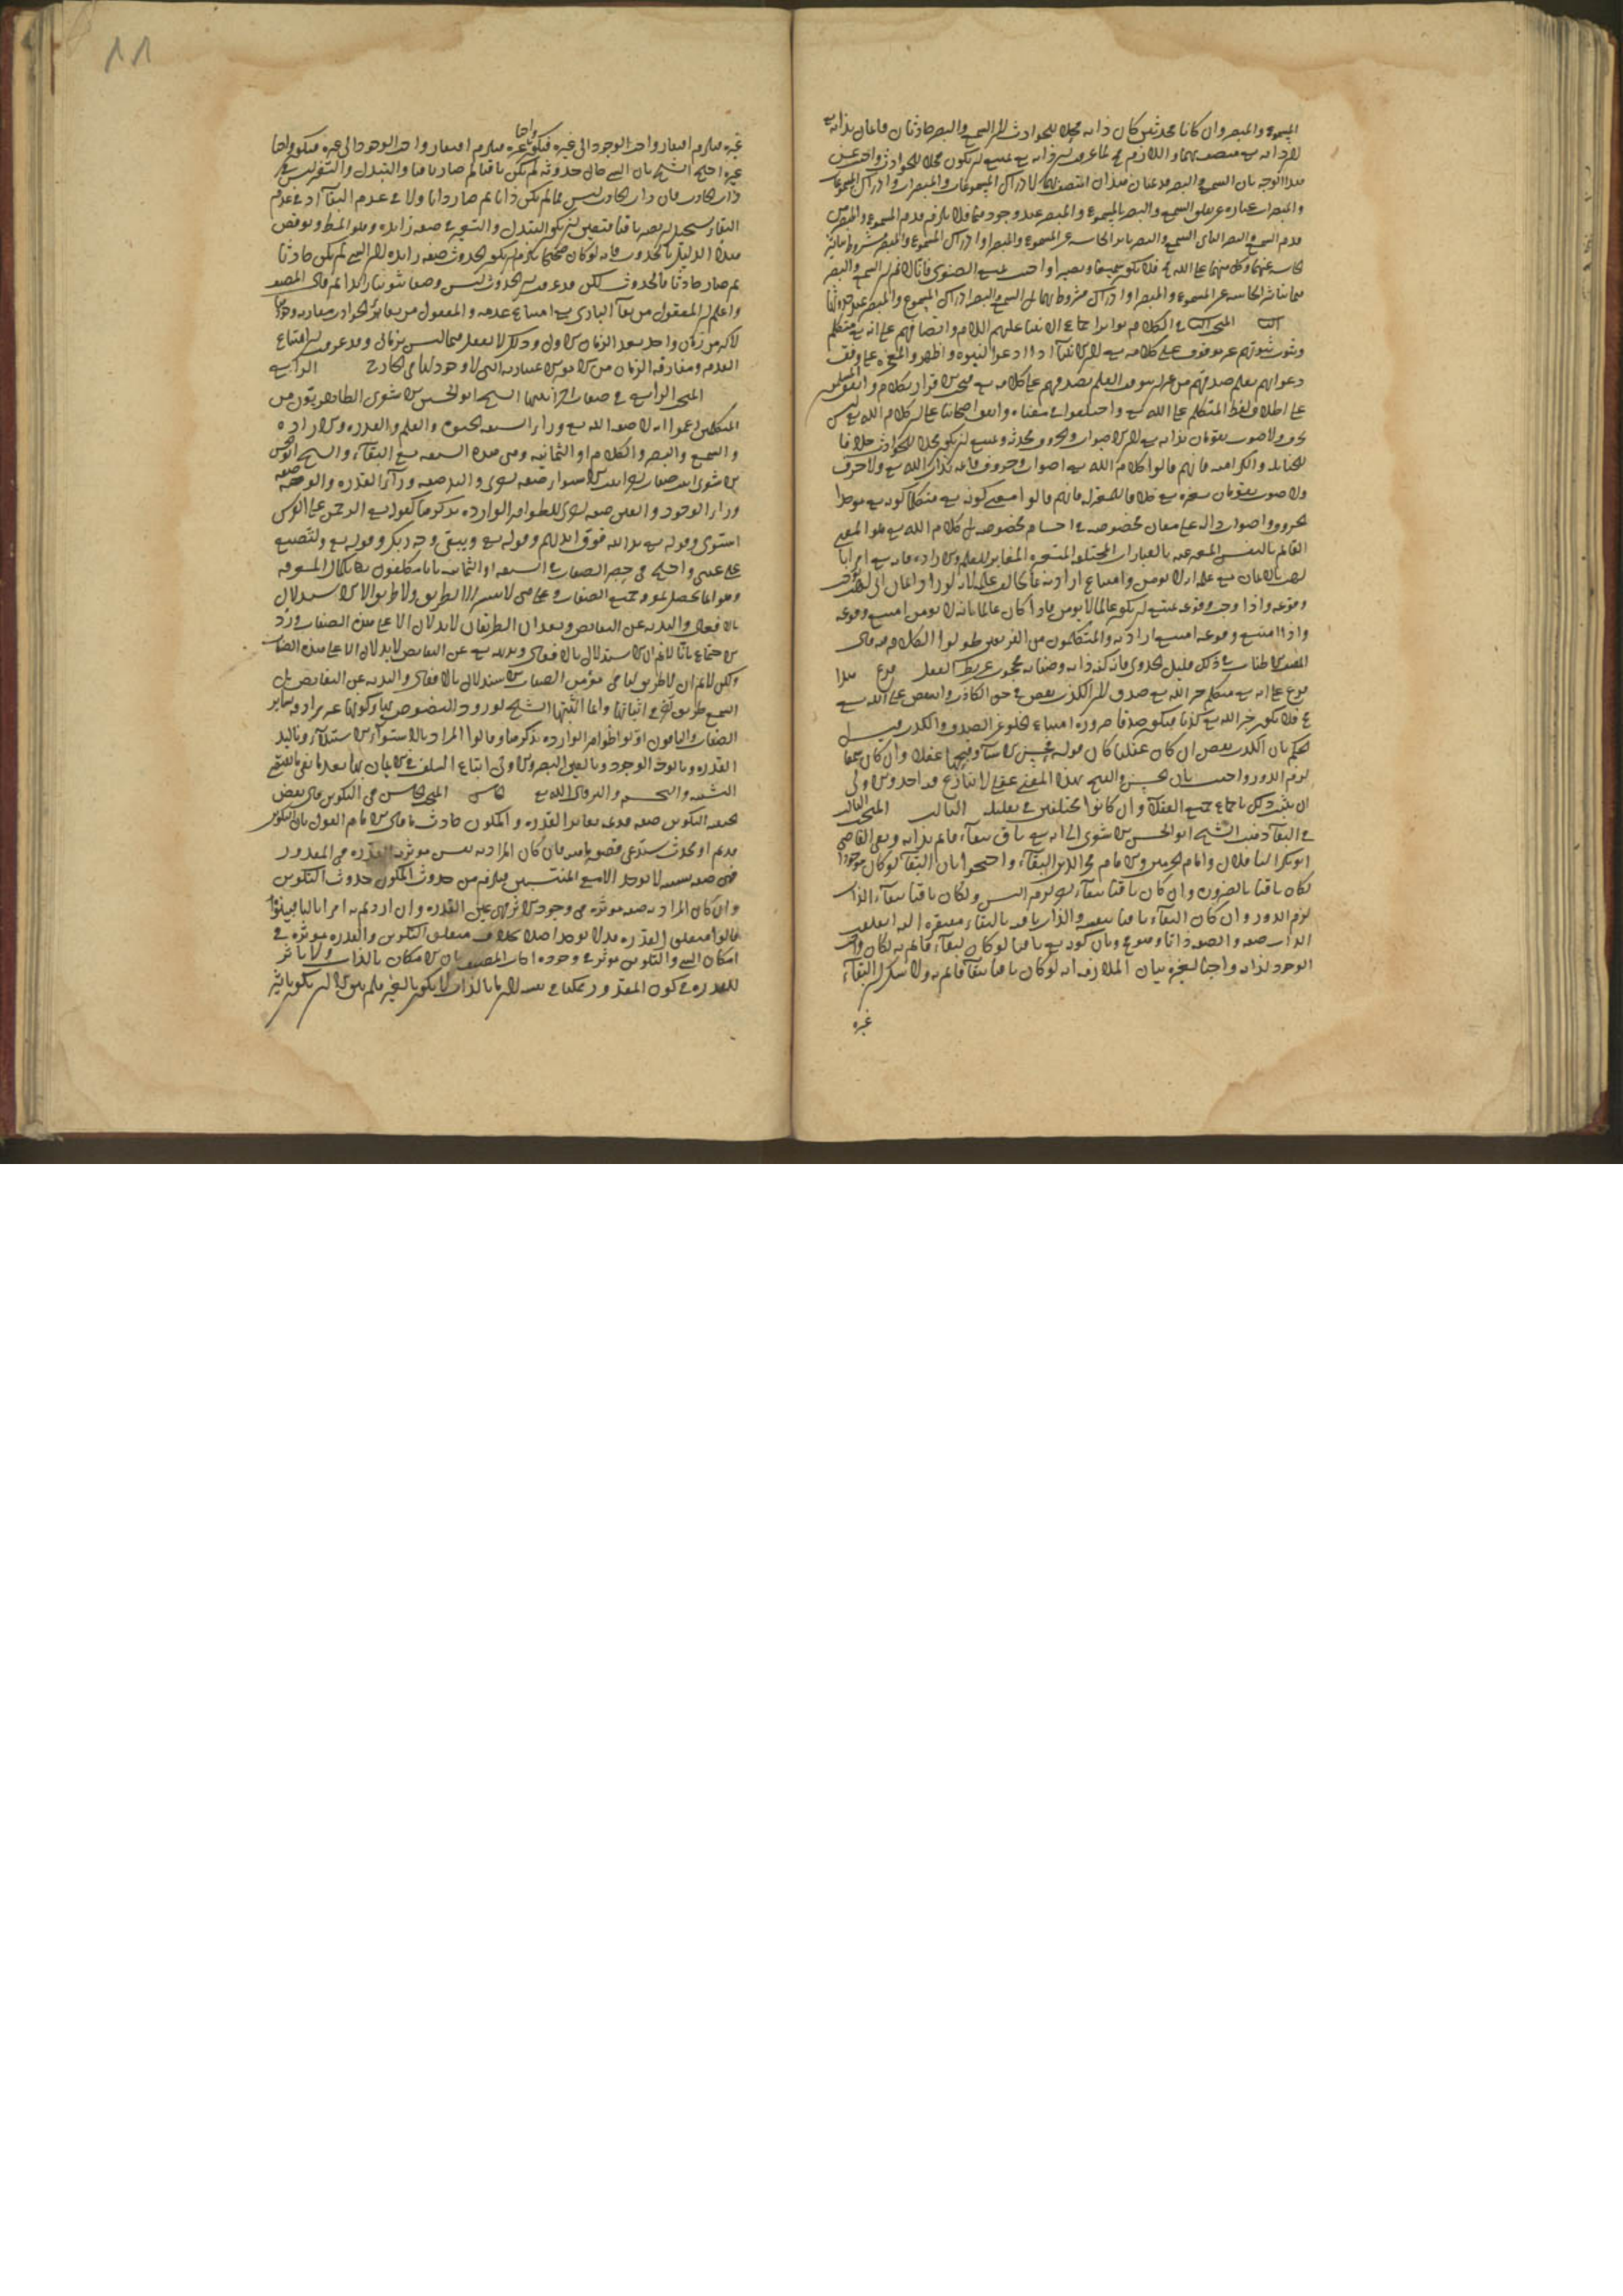 المسموع والمبصر وان كانا محدثين كان ذاته محلا للحوادث لان السمع والبصر حادثان قائمان بذاته تع
لان ذاته تع متصف بهما واللازم مح لما عرفت ان ذاته تع يمتنع ان يكون محلا للحوادث واجيب عن
هذا الوجه بان السمع والبصر صفتان قديمتان المتصف بهما لادراك المسموعات والمبصرات وادراك المسموعات
والمبصرات عبارة عن تعلق السمع والبصر بالمسموع والمبصر عند وجودهما فلا يلزم قدم المسموع والمبصر من
قدم السمع والبصر الثاني السمع والبصر تاثر الحاسة عن المسموع والمبصر او ادراك المسموع والمبصر مشروط بتاثر
الحاسة عنهما وكل منهما على الله مح فلا يكون سميعا وبصيرا واجيب بمنع الصغرى فانا لا نم ان السمع والبصر
هما تاثر الحاسة عن المسموع والمبصر او ادراك مشروط بهما بل السمع والبصر ادراك المسموع والمبصر عند حدوثهما
الثا المبحث الثا في الكلام تواتر اجماع الانبياء عليهم السلام واتفاقهم على انه تع متكلم
وثبوت نبوتهم غير موقوف على كلامه تع لان الانبياء اذا ادعوا النبوة واظهروا المعجزة على وفق
دعواهم يعلم صدقهم من غير ان يتوقف العلم بصدقهم على كلامه تع فيجب الاقرار بكلامه واتفق المسلمون
على اطلاق لفظ المتكلم على الله تع واختلفوا في معناه واتفق اصحابنا على ان كلام الله تع ليس
بحرف ولا صوت يقومان بذاته تع لان الاصوات والحروف محدثة ويمتنع ان يكون محلا للحوادث خلافا
للحنابلة والكرامية فانهم قالوا كلام الله تع اصوات وحروف قائمة بذات الله تع ولا حرف
ولا صوت يقومان بغيره تع خلافا للمعتزلة فانهم قالوا معنى كونه تع متكلما كونه تع موجدا
لحروف واصوات دالة على معان مخصوصة في اجسام مخصوصة بل كلام الله تع هو المعنى
القائم بالنفس المعبر عنه بالعبارات المختلفة المتغيرة المغاير للعلم والارادة فانه تع امر ابا
لهب بالايمان مع علمه انه لا يؤمن وامتناع ارادته لما يخالف علمه لانه لو اراد ايمان ابي لهب لوجب
وقوعه واذا وجب وقوعه يمتنع ان يكون عالما لا يؤمن فاذا كان عالما بانه لا يؤمن امتنع وقوعه
واذا امتنع وقوعه امتنع ارادته والمتكلمون من الفريقين طولوا الكلام فيه قال
المصنف الاطناب في ذلك قليل الجدوى فان كنه ذاته وصفاته محجوب عن نظر العقل فرع هذا
فرع على انه تع متكلم خبر الله تع صدق لان الكذب نقص في حق الكاذب والنقص على الله تع
مح فلا يكون خبر الله تع كذبا فيكون صدقا ضرورة امتناع الخلو عن الصدق والكذب قيل
الحكم بان الكذب نقص ان كان عقليا كان قولا بحسن الاشياء وقبحها عقلا وان كان سمعا
لزم الدور واجيب بان الحسن والقبح بهذا المعنى عقلي لا نتنازع فيه احد والاولى
ان يثبت ذلك باجماع جميع العقلاء وان كانوا مختلفين في تعليله الثالث المبحث الثالث
في البقاء ذهب الشيخ ابو الحسن الاشعري الى انه تع باق ببقاء قائم بذاته ونفى القاضي
ابو بكر الباقلاني وامام الحرمين والامام فخر الدين البقاء واحتجوا بان البقاء لو كان موجودا
لكان باقيا بالضرورة وان كان باقيا ببقاء اخر لزم التس ولو كان باقيا ببقاء الذات
لزم الدور وان كان البقاء باقيا بنفسه والذات باقية بالبقاء مفتقرة اليه انقلبت
الذات صفة والصفة ذاتا وهو مح وبان كونه تع باقيا لو كان لبقاء قائم به لكان واجب
الوجود لذاته واجبا لغيره بيان الملازمة انه لو كان باقيا ببقاء قائم به ولا شك ان البقاء
غيره
١١
غيره فيلزم افتقار واجب الوجود الى غيره فيكون واجبا بغيره فيلزم افتقار واجب الوجود الى غيره فيكون واجبا
بغيره احتج الشيخ بان الشيء حال حدوثه لم يكن باقيا ثم صار باقيا والتبدل والتغير ليس في
ذات الحادث فان ذات الحادث ليس مما لم يكن ذاتا ثم صار ذاتا ولا في عدم البقاء اذ عدم
البقاء يستحيل ان يصير باقيا فتعين ان يكون التبدل والتغير في صفة زائدة وهو المط ونوقض
هذا الدليل بالحدوث فانه لو كان صحيحا يلزم ان يكون الحدوث صفة زائدة لان الشيء لم يكن حادثا
ثم صار حادثا بالحدوث لكن قد عرفت ان الحدوث ليس وصفا ثبوتيا زائدا ثم قال المصنف
واعلم ان المعقول من بقاء الباري تع امتناع عدمه والمعقول من بقاء الحوادث مقارنة وجودها
لاكثر من زمان واحد بعد الزمان الاول وذلك لا يعقل فيما ليس بزماني وقد عرفت ان امتناع
العدم ومقارنة الزمان من الامور الاعتبارية التي لا وجود لها في الخارج الرابع
المبحث الرابع في صفات اخر اثبتها الشيخ ابو الحسن الاشعري الظاهريون من
المتكلمين زعموا انه لا صفة لله تع وراء السبعة الحيوة والعلم والقدرة والارادة
والسمع والبصر والكلام او الثمانية وهي هذه السبعة مع البقاء والشيخ ابو الحسن
الاشعري اثبت صفات اخر اثبت الاستواء صفة اخرى واليد صفة وراء القدرة والوجه صفة
وراء الوجود والعين صفة اخرى للظواهر الواردة بذكرها كقوله تع الرحمن على العرش
استوى وقوله تع يد الله فوق ايديهم وقوله تع ويبقى وجه ربك وقوله تع ولتصنع
على عيني واحتج في حصر الصفات في السبعة او الثمانية بانا مكلفون بكمال المعرفة
وهو انما يحصل بمعرفة جميع الصفات وعلمها لا يتيسر الا بطريق ولا طريق الا الاستدلال
بالافعال والتنزيه عن النقايص وهذان الطريقان لا يدلان الا على هذه الصفات ورد
الاحتجاج بانا لا نم ان الاستدلال بالافعال وتنزيهه تع عن النقايص لا يدلان الا على هذه الصفات
ولكن لا نم ان لا طريق لنا في معرفة الصفات الا الاستدلال بالافعال والتنزيه عن النقايص بل
السمع طريق اخر في اثباتها وانما اثبتها الشيخ لورود النصوص بها وكونها غير مرادفة لساير
الصفات والباقون اولوا ظواهر الواردة بذكرها وقالوا المراد بالاستواء الاستيلاء وباليد
القدرة وبالوجه الوجود وبالعين البصر والاولى اتباع السلف في الايمان بها بعد نفي ما يقتضي
التشبيه والتجسيم والرد الى الله تع الخامس المبحث الخامس في التكوين قال بعض
الحنفية التكوين صفة قديمة تغاير القدرة والمكون حادث قال الامام القول بان التكوين
قديم او محدث يستدعي تصور ماهيته فان كان المراد به نفس مؤثرية القدرة في المقدور
فهي صفة نسبية لا توجد الا مع المنتسبين فيلزم من حدوث المكون حدوث التكوين
وان كان المراد به صفة مؤثرة في وجود الاثر فهي عين القدرة وان اردتم به امرا ثالثا فبينوا
قالوا متعلق القدرة قد لا يوجد اصلا بخلاف متعلق التكوين والقدرة مؤثرة في
امكان الشيء والتكوين مؤثر في وجوده اجاب المصنف بان الامكان بالذات ولا تاثير
للقدرة في كون المقدور ممكنا في نفسه لان ما بالذات لا يكون بالغير فلم يبق الا ان يكون تاثير